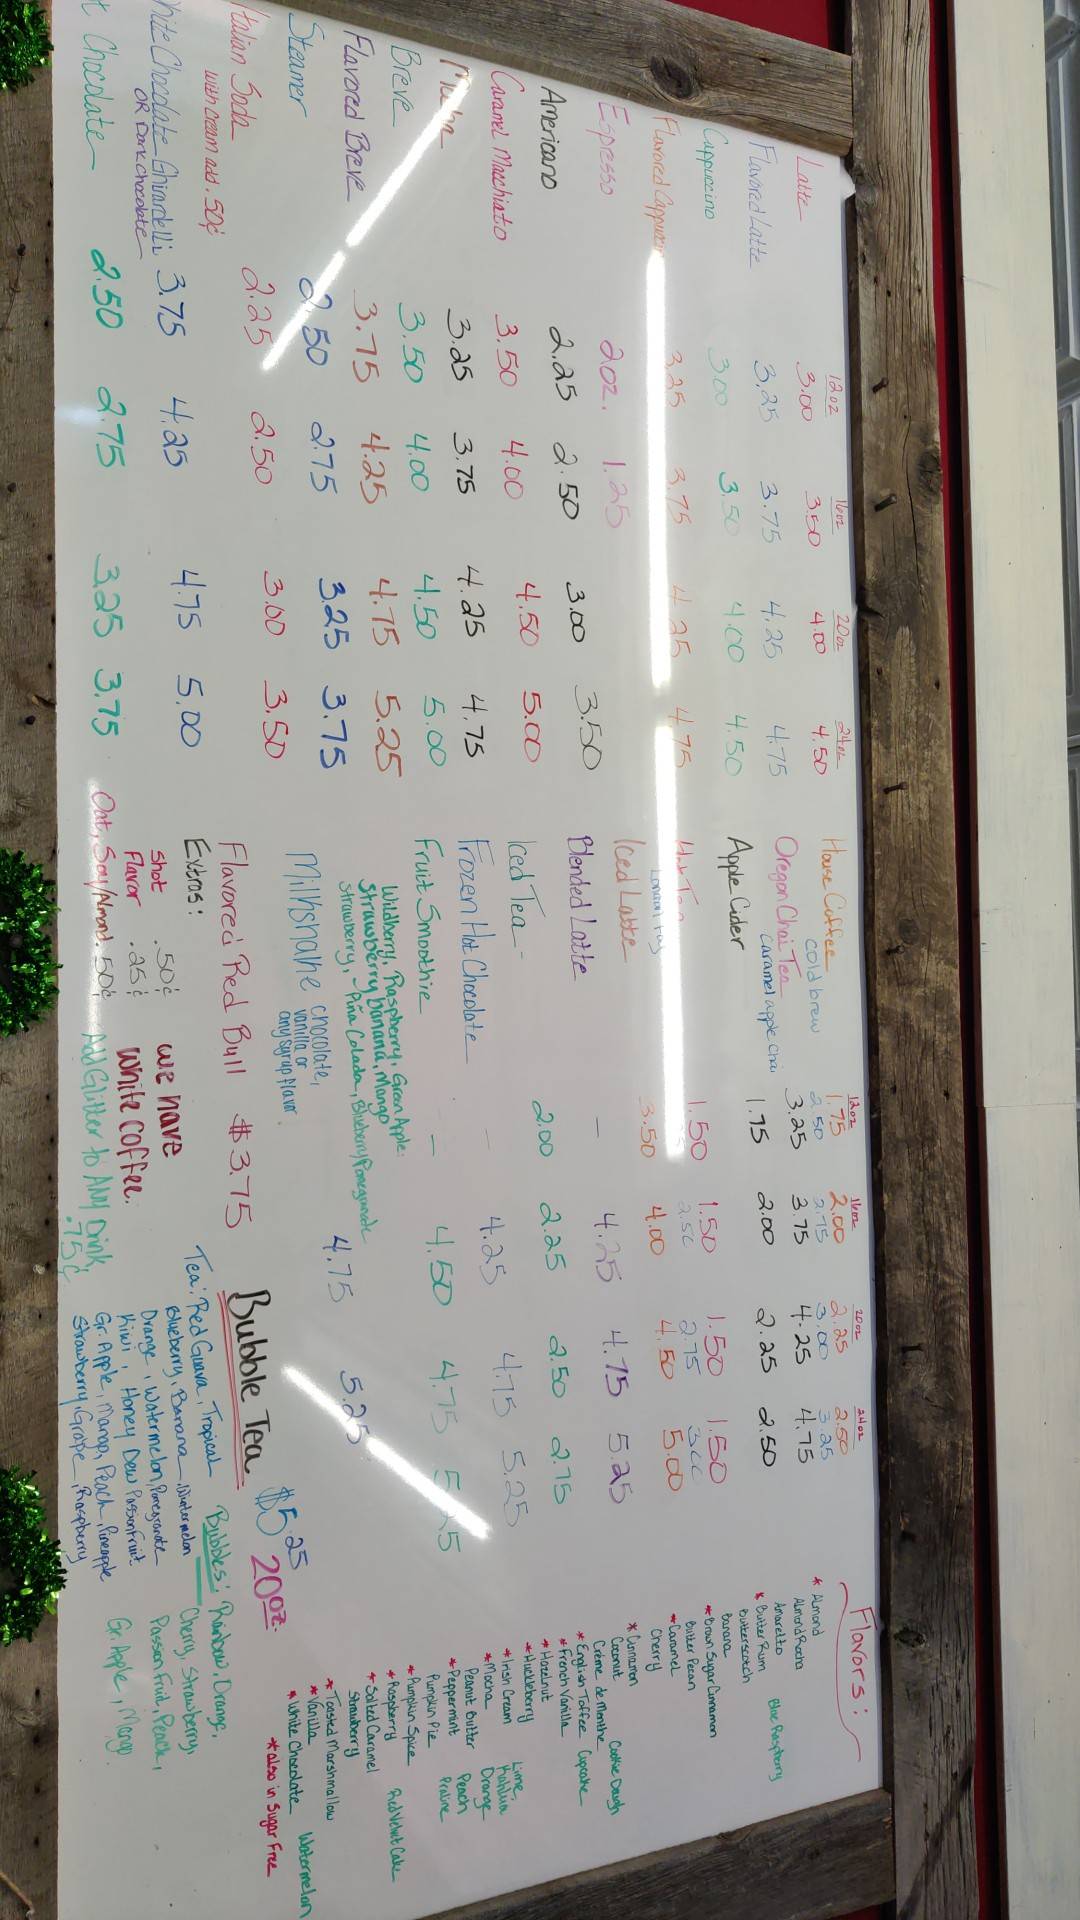 12oz 16oz 20oz 24oz
Latte 3.00 3.50 4.00 4.50
Flavored Latte 3.25 3.75 4.25 4.75
Cappuccino 3.00 3.50 4.00 4.50
Flavored 3.25 3.75 4.25 4.75
Espresso 2oz. 1.25
Americano 2.25 2.50 3.00 3.50
Caramel Macchiato 3.50 4.00 4.50 5.00
Mocha 3.25 3.75 4.25 4.75
Breve 3.50 4.00 4.50 5.00
Flavored Breve 3.75 4.25 4.75 5.25
Steamer 2.50 2.75 3.25 3.75
Italian Soda 2.25 2.50 3.00 3.50
with cream add .50¢
White Chocolate Ghirardelli 3.75 4.25 4.75 5.00
OR Dark Chocolate
Chocolate 2.50 2.75 3.25 3.75
12oz 16oz 20oz 24oz
House Coffee 1.75 2.00 2.25 2.50
cold brew 2.50 2.75 3.00 3.25
Oregon Chai Tea 3.25 3.75 4.25 4.75
caramel apple chai
Apple Cider 1.75 2.00 2.25 2.50
Hot Tea 1.50 1.50 1.50 1.50
London Fog 2.50 2.75 3.00
Iced Latte 3.50 4.00 4.50 5.00
Blended Latte - 4.25 4.75 5.25
Iced Tea - 2.00 2.25 2.50 2.75
Frozen Hot Chocolate - 4.25 4.75 5.25
Fruit Smoothie - 4.50 4.75 5.25
Wildberry, Raspberry, Green Apple,
Strawberry banana, Mango
Strawberry, Piña Colada, Blueberry Pomegranate
Milkshake chocolate, 4.75 5.25
vanilla or
any syrup flavor
Flavored Red Bull $3.75
Extras:
shot .50¢
Flavor .25¢
Oat, Soy/Almond .50¢
we have
white coffee.
Add Glitter to ANY Drink,
.75¢
Bubble Tea $5.25
20oz.
Tea: Red Guava, Tropical
Blueberry, Banana, Watermelon
Orange, Watermelon, Pomegranate
Kiwi, Honey Dew Passionfruit
Gr. Apple, Mango, Peach, Pineapple
Strawberry, Grape, Raspberry
Bubbles: Rainbow, Orange,
Cherry, Strawberry,
Passion Fruit, Peach,
Gr. Apple, Mango
Flavors:
* Almond
Almond Rocha
Amaretto Blue Raspberry
* Butter Rum
Butterscotch
Banana
* Brown Sugar Cinnamon
Butter Pecan
* Caramel
Cherry
* Cinnamon
Coconut Cookie Dough
Crème de Menthe
* English Toffee Cupcake
* French Vanilla
* Hazelnut
* Huckleberry
* Irish Cream Lime,
* Mocha Kahlua
Peanut Butter Orange
* Peppermint Peach
Pumpkin Pie Praline
* Pumpkin Spice
* Raspberry Red Velvet Cake
* Salted Caramel
Strawberry
* Toasted Marshmallow
* Vanilla
* White Chocolate Watermelon
* also in Sugar Free